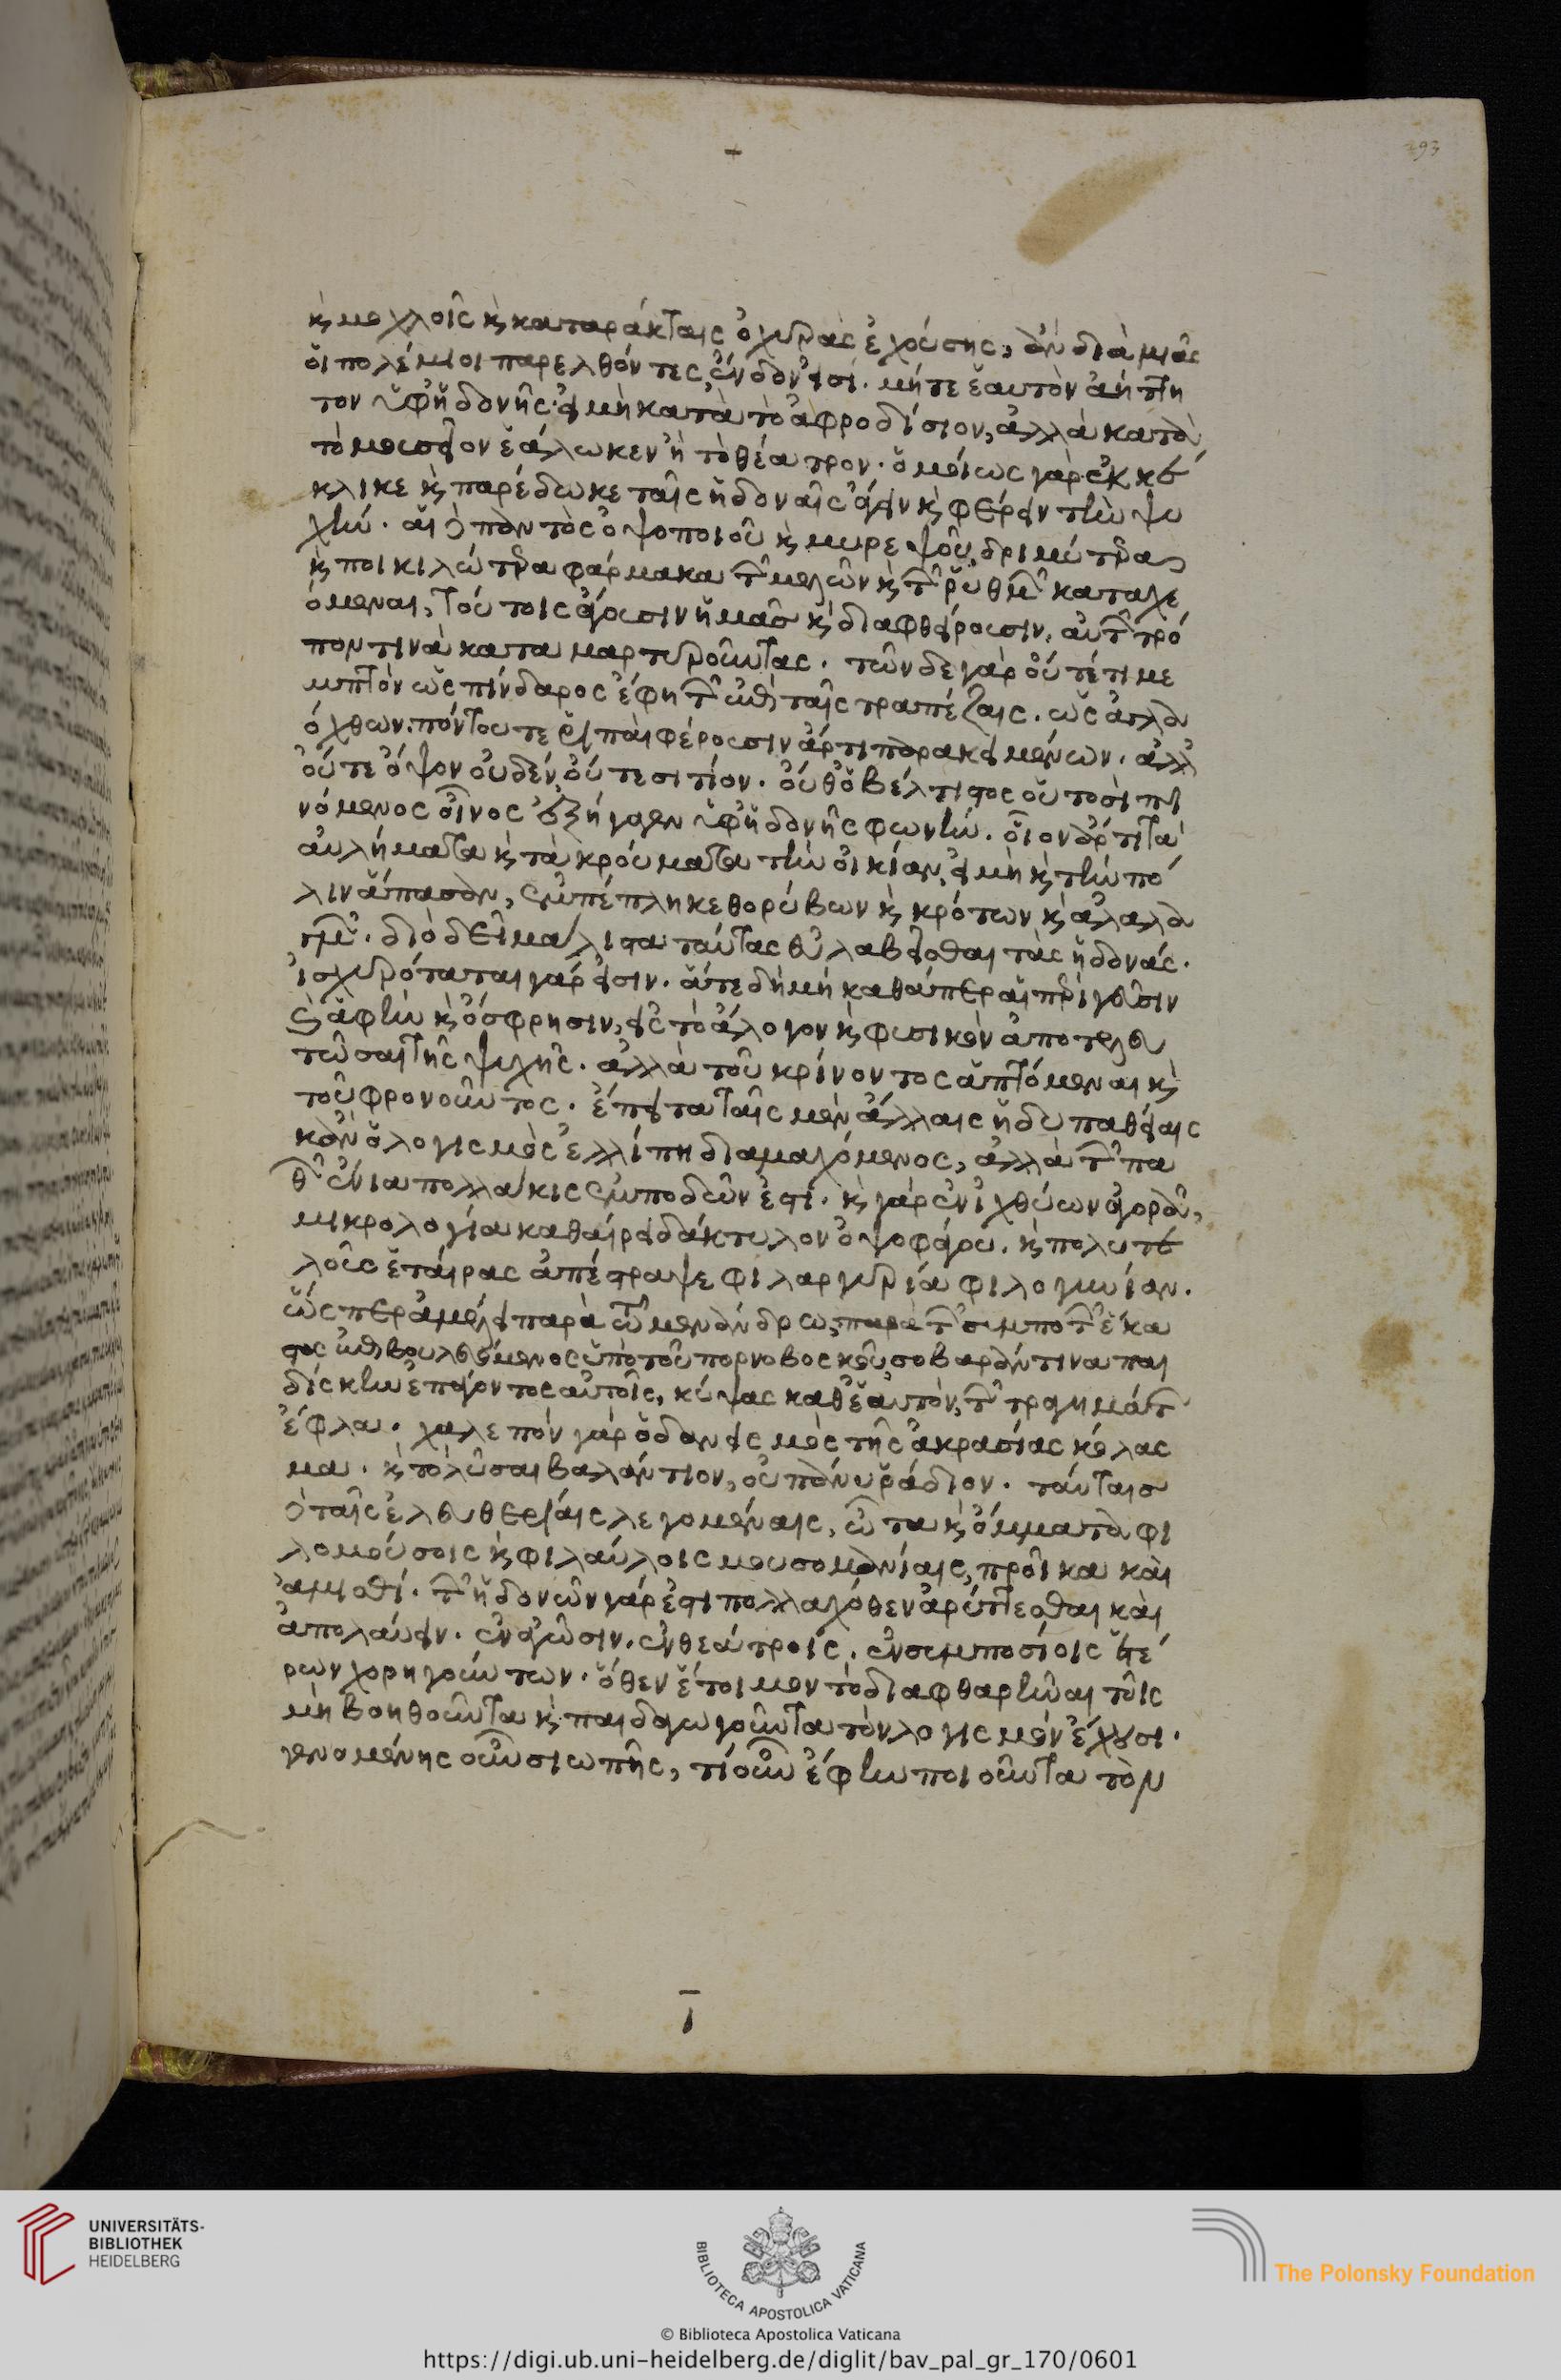 293
κ μοχλοῖς κ καταράκταις ὀχυρὰς ἐχούσης, ἂν διὰ μιᾶς
οἱ πολέμιοι παρελθόντες ἔνδον εἰσί. μήτε ἑαυτὸν ἀήττη
τον ὑφ' ἡδονῆς· εἰ μὴ κατὰ τὸ ἀφροδίσιον, ἀλλὰ κατὰ
τὸ μουσεῖον ἑάλωκεν ἢ τὸ θέατρον. ὁμοίως γὰρ ἐκκέ
κλικε κ παρέδωκε ταῖς ἡδοναῖς ἄγειν κ φέρειν τὴν ψυ
χήν. αἱ δὲ παντὸς ὀψοποιοῦ κ μυρεψοῦ, δριμύτερα
κ ποικιλώτερα φάρμακα τῶν μελῶν κ τῶν ῥυθμῶν καταχε
όμεναι, τούτοις ἄγουσιν ἡμᾶς κ διαφθείρουσιν, αὐτῶν τρό
πον τινὰ καταμαρτυροῦντας. τῶν δε γὰρ οὔτέ τι με
μπτὸν ὡς πίνδαρος ἔφη τῶν ἐπὶ ταῖς τραπέζαις. ὡς ἀγλα
ό χθων. πόντου τε ῥιπαὶ φέρουσιν ἄρτι παρακειμένων. ἀλλ'
οὔτε ὄψον οὐδέν, οὔτε σιτίον. οὔθ' ὁ βέλτιστος οὑτοσὶ πι
νόμενος οἶνος ἐξήγαγεν ὑφ' ἡδονῆς φωνήν. οἷον ἄρτι τὰ
αὐλήματα κ τὰ κρούματα τὴν οἰκίαν, εἰ μὴ κ τὴν πό
λιν ἅπασαν, ἐμπέπληκε θορύβων κ κρότων κ ἀλαλα
γμῶν. διὸ δεῖ μάλιστα ταύτας εὐλαβεῖσθαι τὰς ἡδονάς.
ἰσχυρόταται γάρ εἰσιν. ἅτε δὴ μὴ καθάπερ αἱ περὶ γεῦσιν
κ ἁφὴν κ ὄσφρησιν, εἰς τὸ ἄλογον κ φυσικὸν ἀποτελευ
τῶσαι τῆς ψυχῆς. ἀλλὰ τοῦ κρίνοντος ἁπτόμεναι κ
τοῦ φρονοῦντος. ἔπειτα ταῖς μὲν ἄλλαις ἡδυπαθείαις
κἂν ὁ λογισμὸς ἐλλίπη διαμαχόμενος, ἀλλὰ τῶν πα
θῶν ἔνια πολλάκις ἐμποδών ἐστι. κ γὰρ ἐν ἰχθύων ἀγορᾷ,
μικρολογία καθαίρει δάκτυλον ὀψοφάγου. κ πολυτε
λοῦς ἑταίρας ἀπέστρεψε φιλαργυρία φιλογυνίαν.
ὥσπερ ἀμέλει παρὰ τῶ μενάνδρω, παρὰ τῶν συμποτῶν ἕκα
στος ἐπιβουλευόμενος ὑπὸ τοῦ πορνοβοσκοῦ, σοβαράν τινα παι
δίσκην ἐπάγοντος αὐτοῖς, κύψας καθ' ἑαυτὸν, τῶν τραγημάτων
ἔφλα. χαλεπὸν γὰρ ὁ δανεισμὸς τῆς ἀκρασίας κόλας
μα. κ τὸ λῦσαι βαλάντιον, οὐ πάνυ ῥάδιον. ταύταις
δὲ ταῖς ἐλευθερίαις λεγομέναις, ὦτα κ ὄμματα φι
λομούσοις κ φιλαύλοις μουσομανίαις, προῖκα καὶ
ἀμισθί. τῶν ἡδονῶν γάρ ἐστι πολλαχόθεν ἀρύτεσθαι καὶ
ἀπολαύειν. ἐν ἀγῶσιν. ἐν θεάτροις. ἐν συμποσίοις ἑτέ
ρων χορηγούντων. ὅθεν ἕτοιμον τὸ διαφθαρῆναι τοῖς
μὴ βοηθοῦντα κ παιδαγωγοῦντα τὸν λογισμὸν ἔχουσι.
γενομένης οὖν σιωπῆς, τί οὖν ἔφην ποιοῦντα τὸν
UNIVERSITÄTS-
BIBLIOTHEK
HEIDELBERG
BIBLIOTECA APOSTOLICA VATICANA
The Polonsky Foundation
© Biblioteca Apostolica Vaticana
https://digi.ub.uni-heidelberg.de/diglit/bav_pal_gr_170/0601